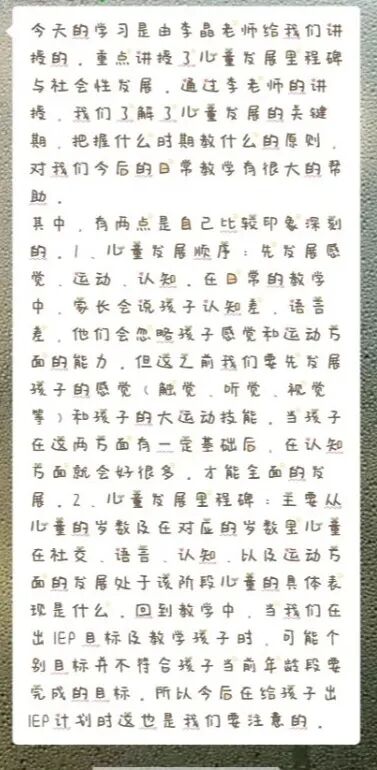 今天的学习是由李晶老师给我们讲
授的。重点讲授了儿童发展里程碑
与社会性发展。通过李老师的讲
授，我们了解了儿童发展的关键
期，把握什么时期教什么的原则，
对我们今后的日常教学有很大的帮
助。
其中，有两点是自己比较印象深刻
的。1、儿童发展顺序：先发展感
觉、运动、认知。在日常的教学
中，家长会说孩子认知差，语言
差，他们会忽略孩子感觉和运动方
面的能力，但这之前我们要先发展
孩子的感觉（触觉、听觉、视觉
等）和孩子的大运动技能。当孩子
在这两方面有一定基础后，在认知
方面就会好很多，才能全面的发
展。2、儿童发展里程碑：主要从
儿童的岁数及在对应的岁数里儿童
在社交、语言、认知、以及运动方
面的发展处于该阶段儿童的具体表
现是什么。回到教学中，当我们在
出IEP目标及教学孩子时，可能个
别目标并不符合孩子当前年龄段要
完成的目标，所以今后在给孩子出
IEP计划时这也是我们要注意的。